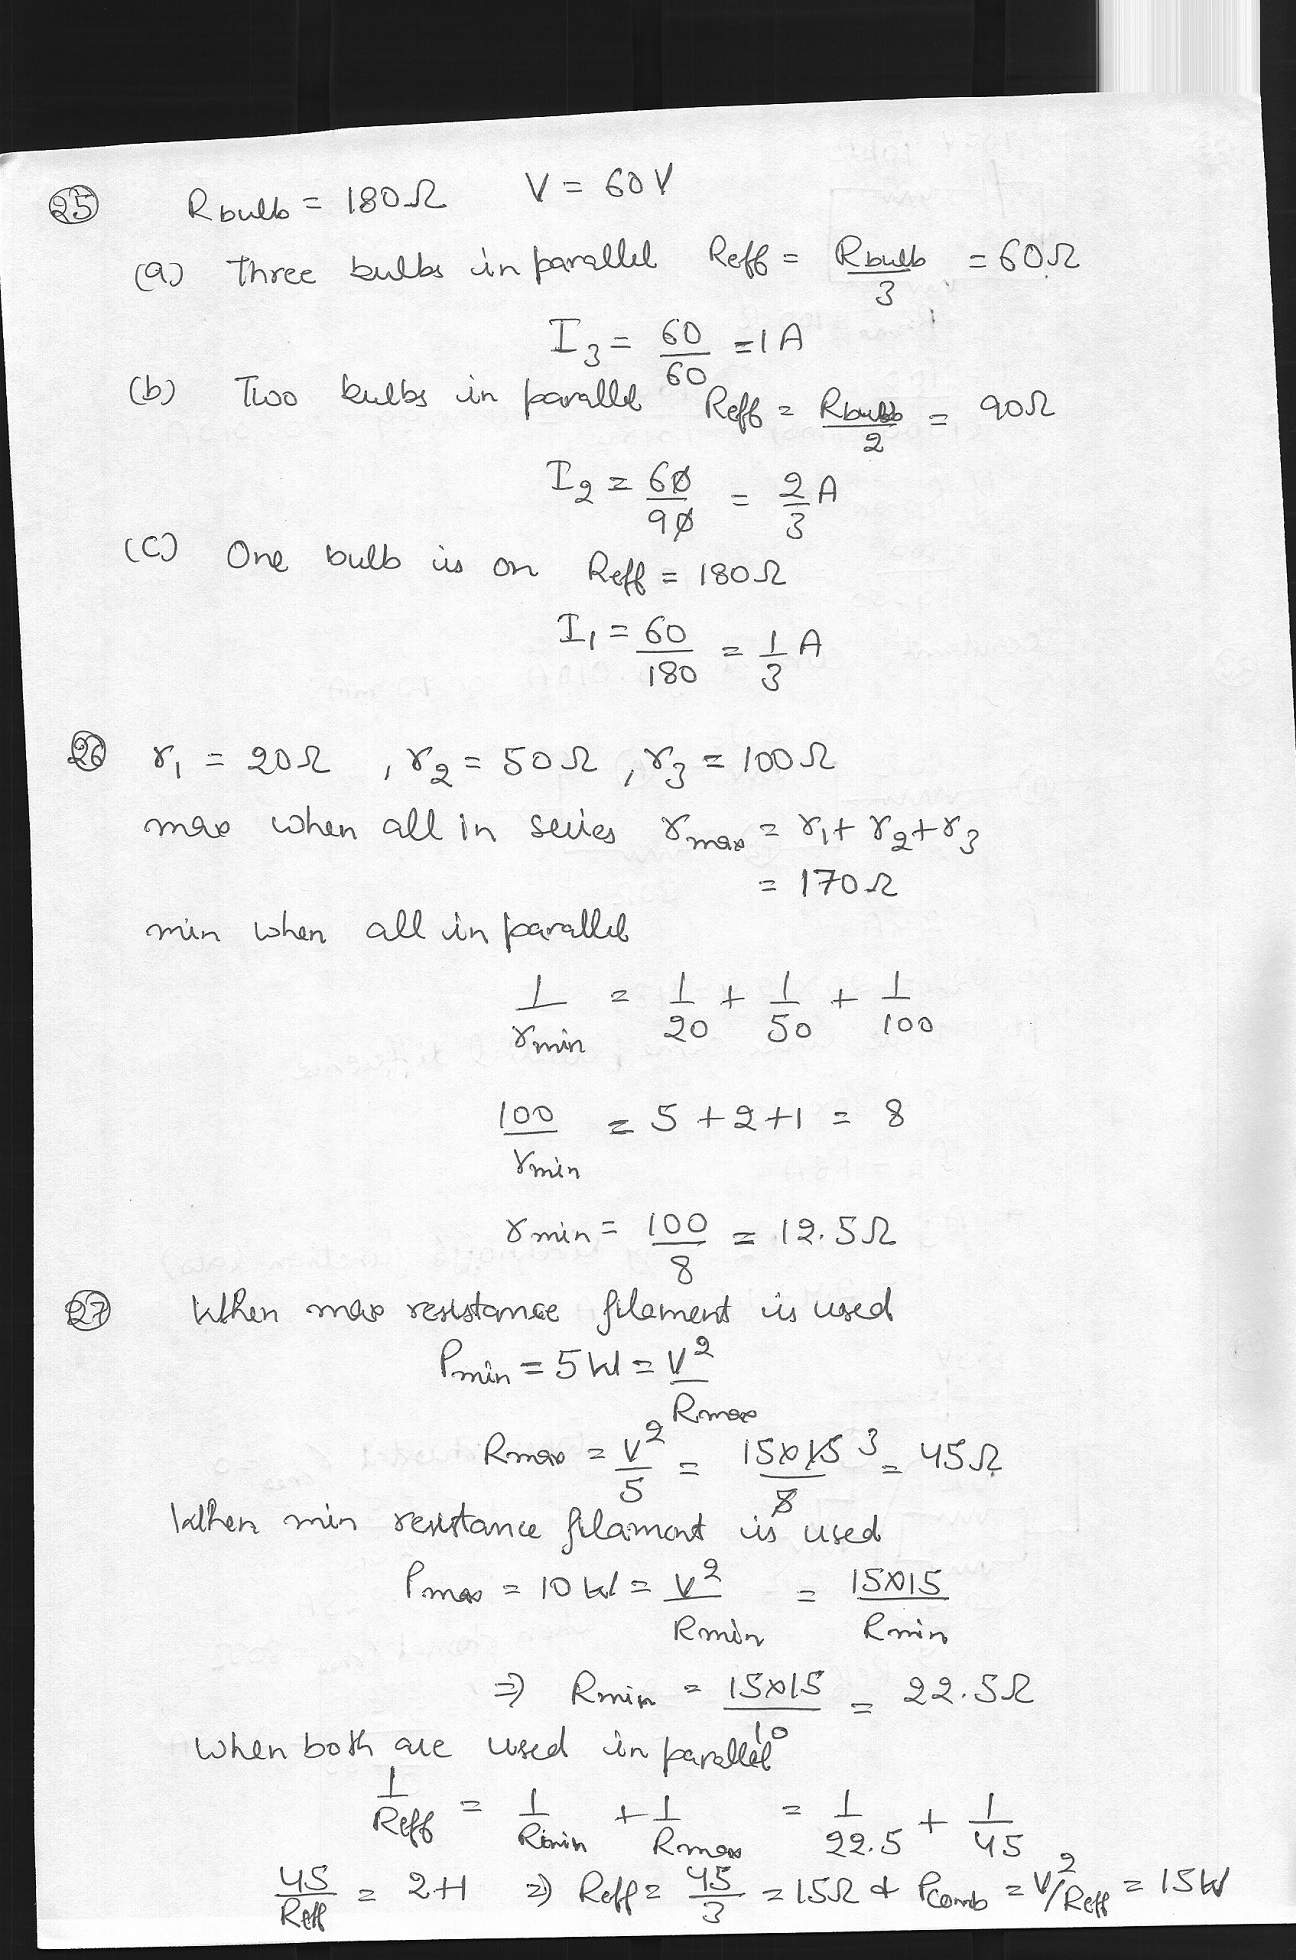 25 Rbulb = 180Ω V = 60V
(a) Three bulbs in parallel Reff = Rbulb/3 = 60Ω
I3 = 60/60 = 1A
(b) Two bulbs in parallel Reff = Rbulb/2 = 90Ω
I2 = 60/90 = 2/3 A
(c) One bulb is on Reff = 180Ω
I1 = 60/180 = 1/3 A
26 r1 = 20Ω , r2 = 50Ω , r3 = 100Ω
max when all in series rmax = r1 + r2 + r3
= 170Ω
min when all in parallel
1/rmin = 1/20 + 1/50 + 1/100
100/rmin = 5 + 2 + 1 = 8
rmin = 100/8 = 12.5Ω
27 When max resistance filament is used
Pmin = 5W = V²/Rmax
Rmax = V²/5 = 15×15 3/5 = 45Ω
When min resistance filament is used
Pmax = 10W = V²/Rmin = 15×15/Rmin
⇒ Rmin = 15×15/10 = 22.5Ω
When both are used in parallel
1/Reff = 1/Rmin + 1/Rmax = 1/22.5 + 1/45
45/Reff = 2+1 ⇒ Reff = 45/3 = 15Ω & Pcomb = V²/Reff = 15W